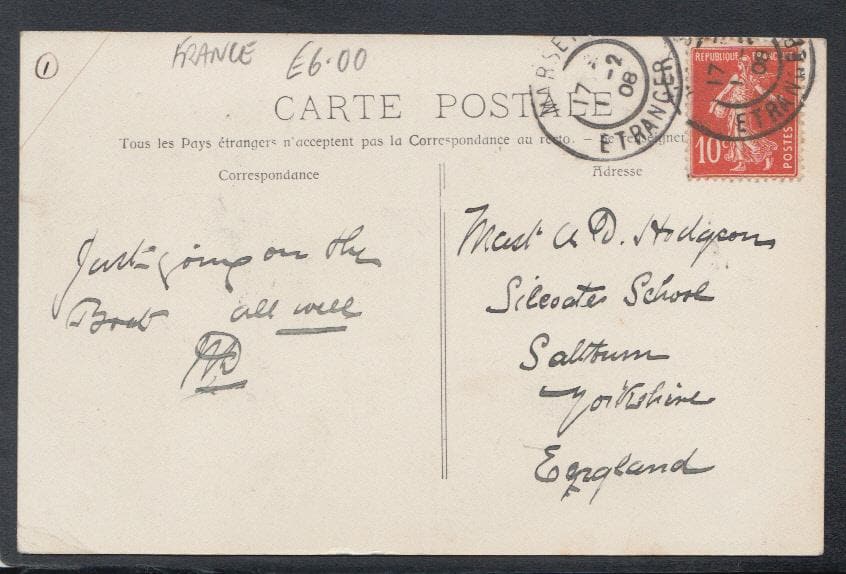 1
FRANCE £6.00
MARSE
17 -2
08
ETRANGER
17
08
ETRANGER
REPUBLIQUE FRANÇAISE
10c
POSTES
CARTE POSTALE
Tous les Pays étrangers n'acceptent pas la Correspondance au recto. – Se renseigner
Correspondance
Adresse
Just going on the
Boat all well
Mast A D. Hodgson
Silcoates School
Saltburn
Yorkshire
England